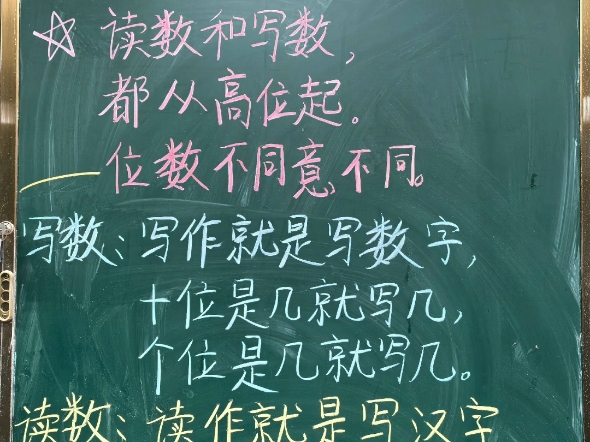 ☆ 读数和写数,
都从高位起。
位数不同意不同。
写数:写作就是写数字,
十位是几就写几,
个位是几就写几。
读数:读作就是写汉字